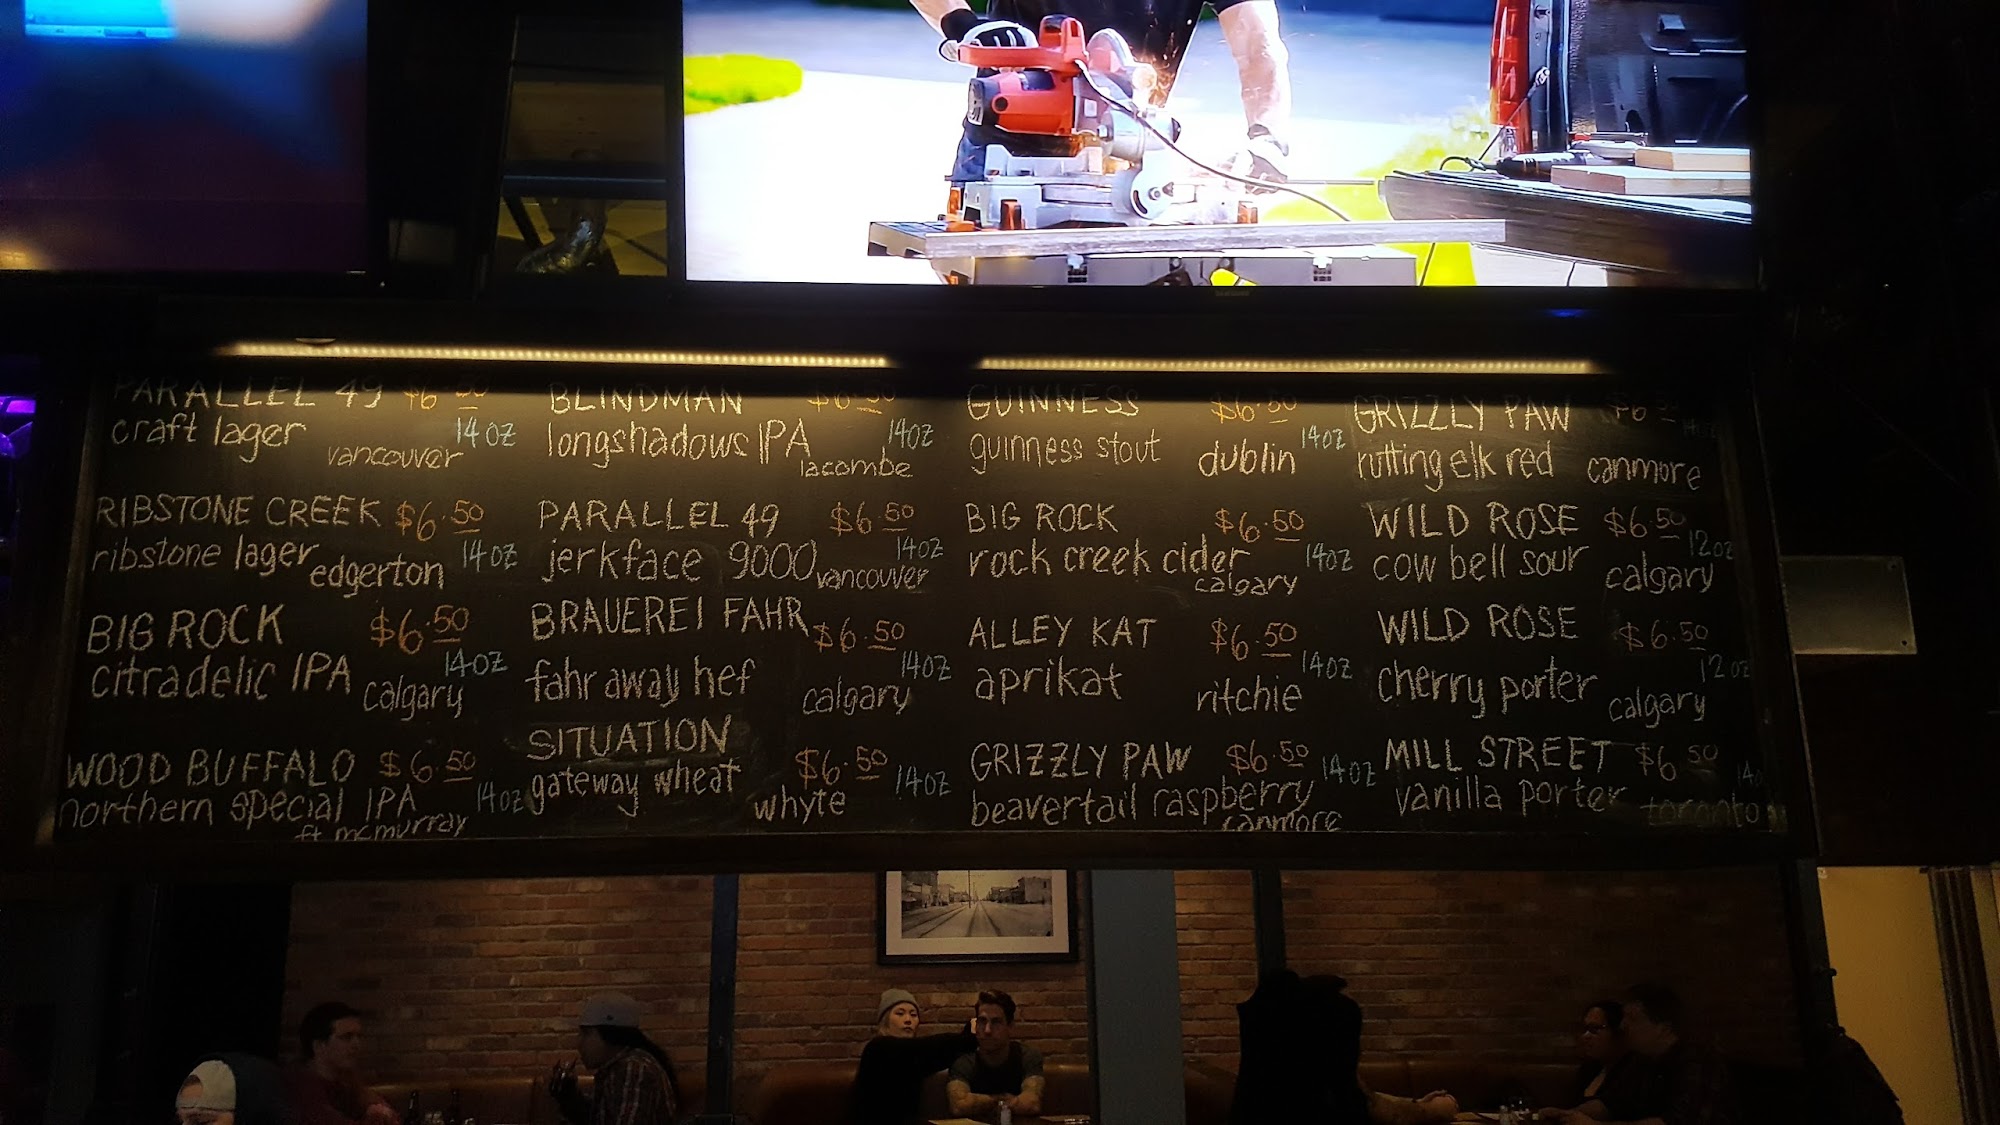 PARALLEL 49 $6.50
craft lager 14oz
vancouver
RIBSTONE CREEK $6.50
ribstone lager 14oz
edgerton
BIG ROCK $6.50
citradelic IPA 14oz
calgary
WOOD BUFFALO $6.50
northern special IPA 14oz
ft mcmurray
BLINDMAN $6.50
longshadows IPA 14oz
lacombe
PARALLEL 49 $6.50
jerkface 9000 14oz
vancouver
BRAUEREI FAHR $6.50
fahr away hef 14oz
calgary
SITUATION $6.50
gateway wheat 14oz
whyte
GUINNESS $6.50
guinness stout 14oz
dublin
BIG ROCK $6.50
rock creek cider 14oz
calgary
ALLEY KAT $6.50
aprikat 14oz
ritchie
GRIZZLY PAW $6.50
beavertail raspberry 14oz
canmore
GRIZZLY PAW $6.50
rutting elk red 14oz
canmore
WILD ROSE $6.50
cow bell sour 12oz
calgary
WILD ROSE $6.50
cherry porter 12oz
calgary
MILL STREET $6.50
vanilla porter
toronto